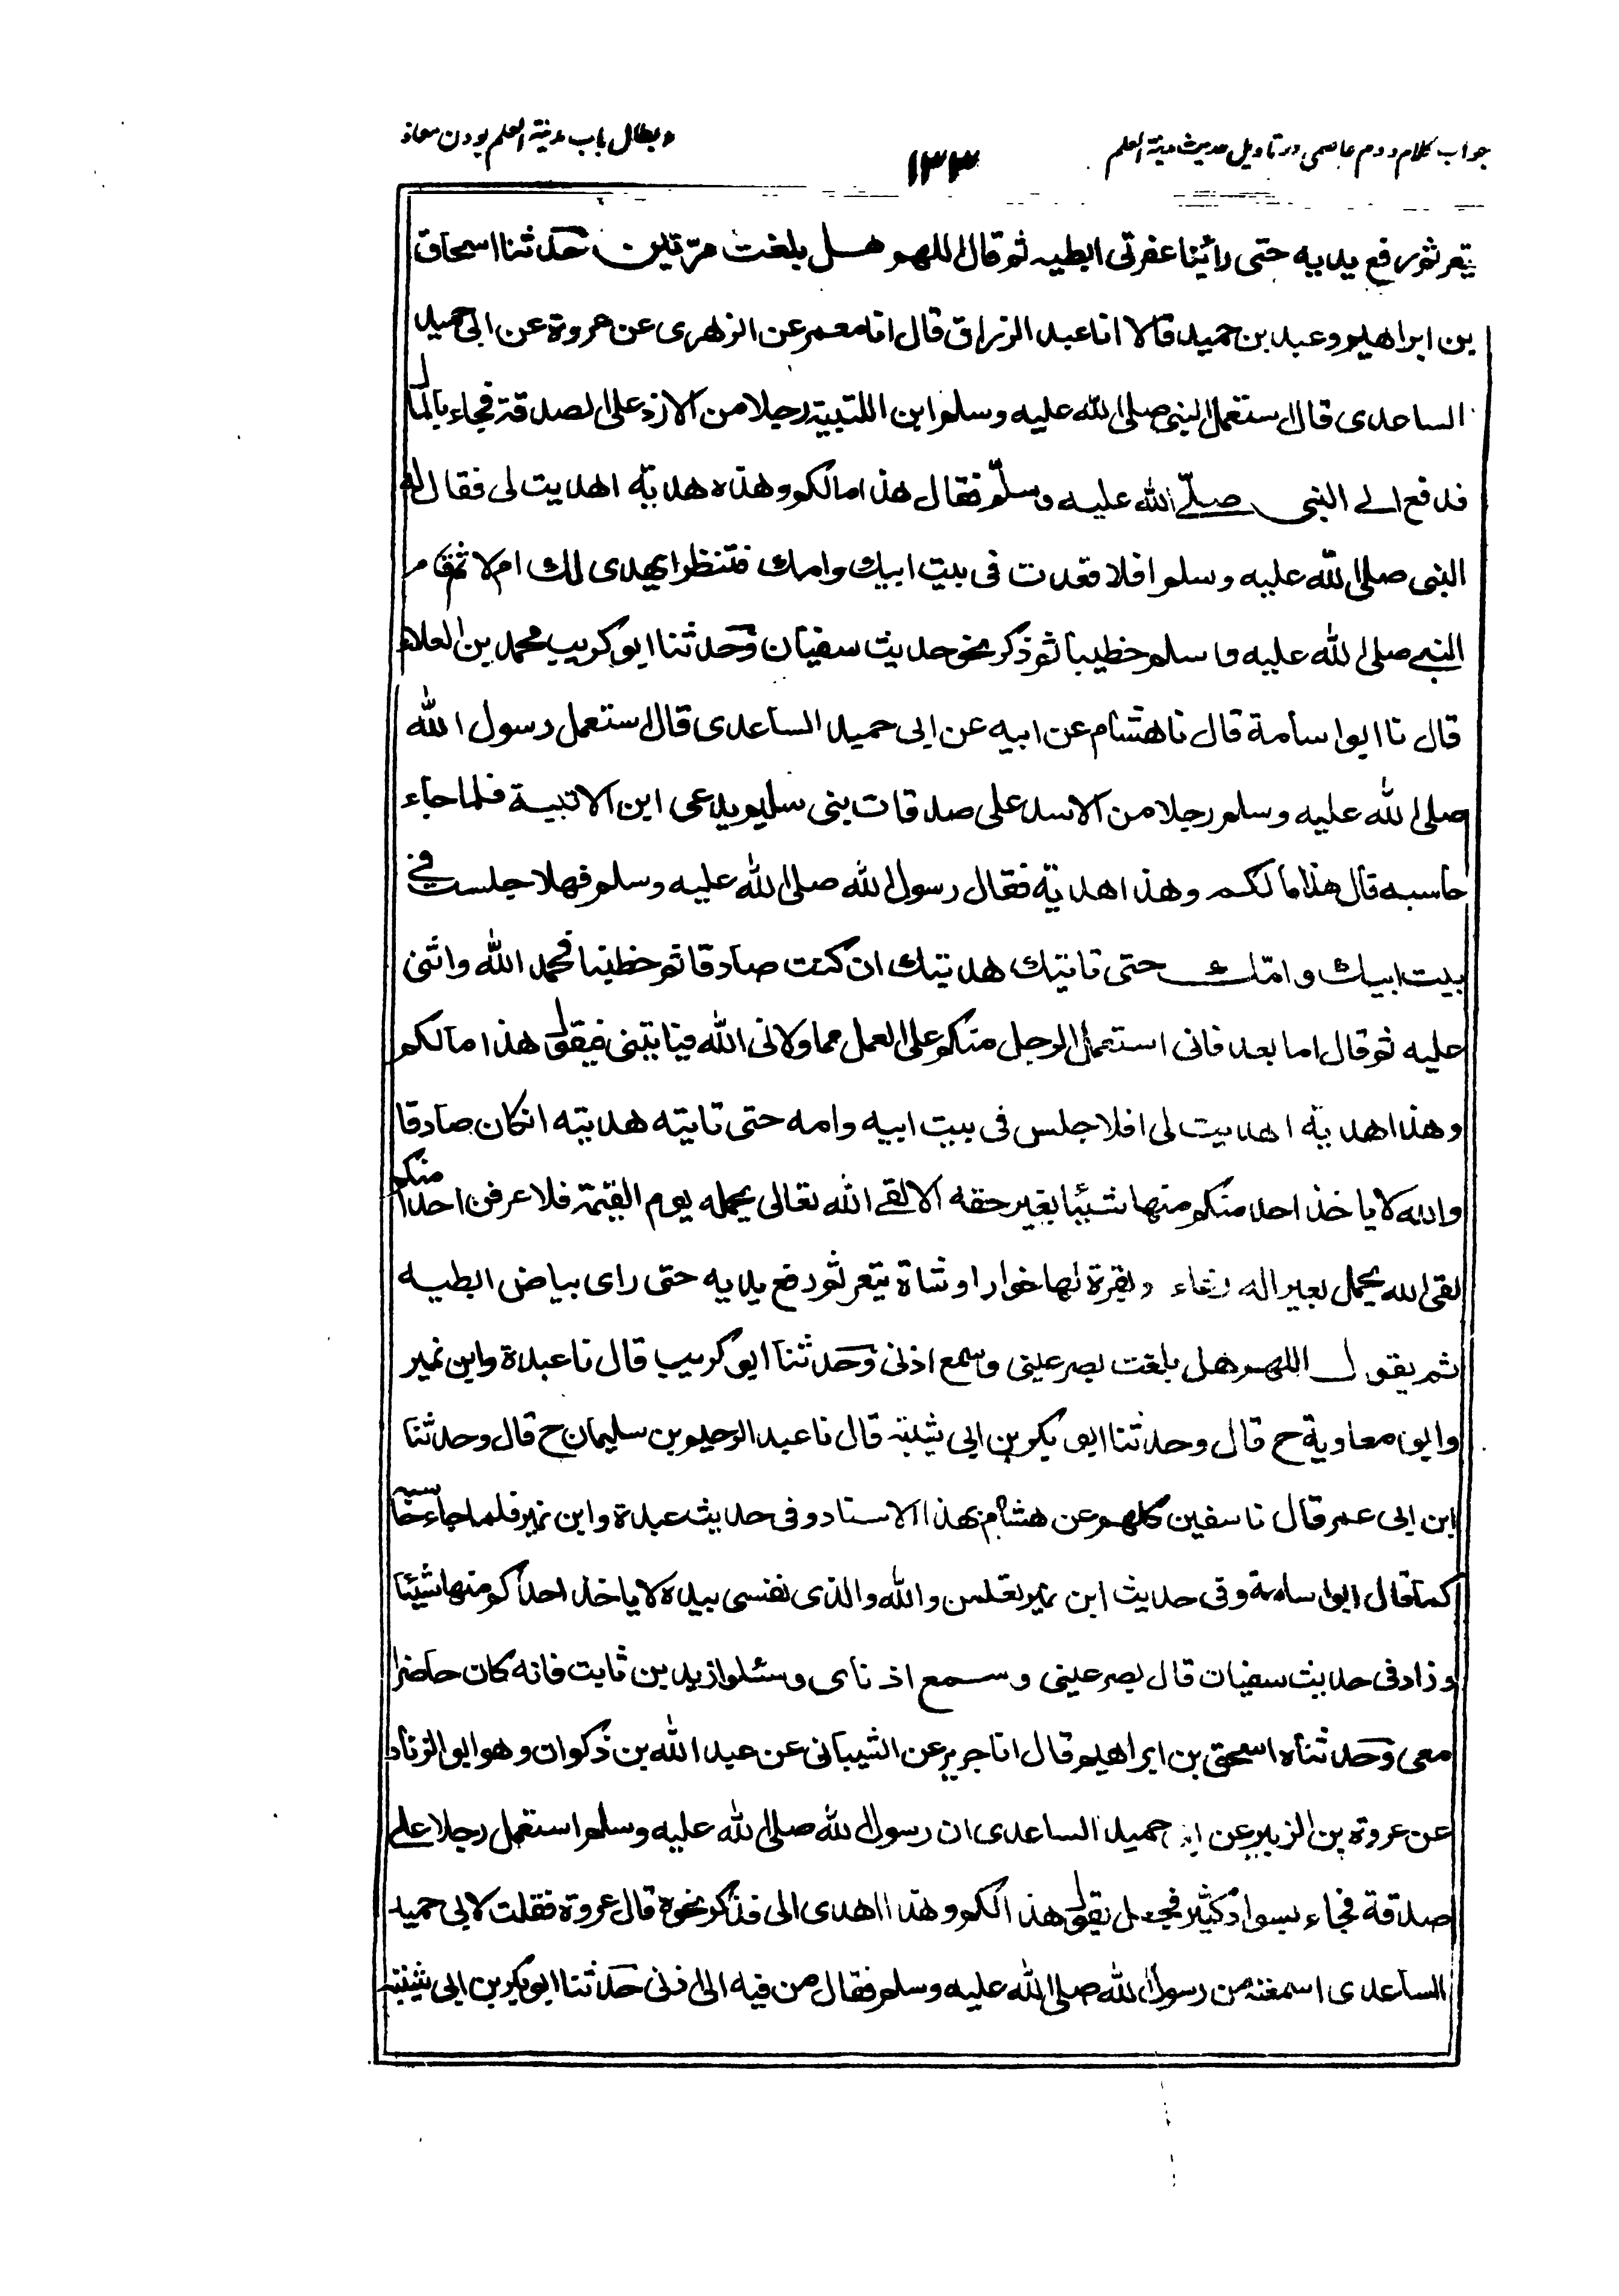 جواب کلام دوم عاصمی در تاویل حدیث مدینة العلم
۱۳۳
و ابطال باب مدینة العلم بودن معاذ
تيعر ثم رفع يديه حتى رائينا عفرتى ابطيه ثم قال اللهم هل بلغت مرّتين حدثنا اسحاق
بن ابراهيم وعبد بن حميد قالا انا عبد الرزاق قال انا معمر عن الزهرى عن عروة عن ابى حميد
الساعدى قال استعمل النبى صلى الله عليه وسلم ابن اللتبية رجلا من الازد على الصدقة فجاء بالمال
فدفع الى النبى صلّى الله عليه وسلّم فقال هذا مالكم وهذه هديّة اهديت لى فقال له
النبى صلى الله عليه وسلم افلا قعدت فى بيت ابيك وامك فتنظر ايهدى لك ام لا ثم قام
النبى صلى الله عليه وسلم خطيبا ثم ذكر نحو حديث سفيان وحدثنا ابو كريب محمد بن العلاء
قال نا ابو اسامة قال نا هشام عن ابيه عن ابى حميد الساعدى قال استعمل رسول الله
صلى الله عليه وسلم رجلا من الاسد على صدقات بنى سليم يدعى ابن الاتبية فلما جاء
حاسبه قال هذا مالكم وهذا هدية فقال رسول الله صلى الله عليه وسلم فهلا جلست فى
بيت ابيك وامّك حتى تاتيك هديتك ان كنت صادقا ثم خطبنا فحمد الله واثنى
عليه ثم قال اما بعد فانى استعمل الرجل منكم على العمل مما ولانى الله فياتينى فيقول هذا مالكم
وهذا هدية اهديت لى افلا جلس فى بيت ابيه وامه حتى تاتيه هديته انكان صادقا
والله لا ياخذ احد منكم منها شيئا بغير حقه الا لقى الله تعالى يحمله يوم القيمة فلاعرفن احدا منكم
لقى الله يحمل بعيرا له رغاء وبقرة لها خوار او شاة تيعر ثم رفع يديه حتى راى بياض ابطيه
ثم يقول اللهم هل بلغت بصر عينى وسمع اذنى وحدثنا ابو كريب قال نا عبدة وابن نمير
وابو معاوية ح قال وحدثنا ابو بكر بن ابى شيبة قال نا عبد الرحيم بن سليمان ح قال وحدثنا
ابن ابى عمر قال نا سفين كلهم عن هشام بهذا الاسناد وفى حديث عبدة وابن نمير فلما جاء حاسبه
كما قال ابو اسامة وفى حديث ابن نمير تعلمن والله والذى نفسى بيده لا ياخذ احدكم منها شيئا
وزاد فى حديث سفيان قال بصر عينى وسمع اذناى وسئلوا زيد بن ثابت فانه كان حاضرا
معى وحدثناه اسحق بن ابراهيم قال انا جرير عن الشيبانى عن عبد الله بن ذكوان وهو ابو الزناد
عن عروة بن الزبير عن ابى حميد الساعدى ان رسول الله صلى الله عليه وسلم استعمل رجلا على
صدقة فجاء بسواد كثير فجعل يقول هذا لكم وهذا اهدى الى فذكر نحوه قال عروة فقلت لابى حميد
الساعدى اسمعته من رسول الله صلى الله عليه وسلم فقال من فيه الى اذنى حدثنا ابو بكر بن ابى شيبة